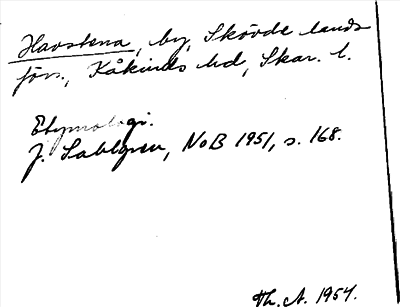 Havstena, by, Skövde lands
förs., Kåkinds hd, Skar. l.
Etymologi.
J. Sahlgren, NoB 1951, s. 168.
Th. A. 1954.